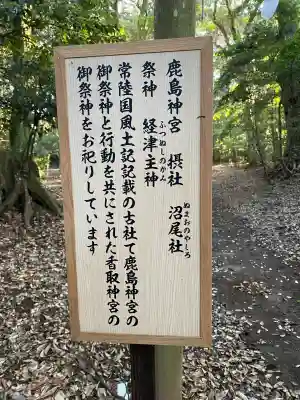 鹿島神宮 摂社 沼尾社
ぬまおのやしろ
祭神 経津主神
ふつぬしのかみ
常陸国風土記記載の古社で鹿島神宮の
御祭神と行動を共にされた香取神宮の
御祭神をお祀りしています